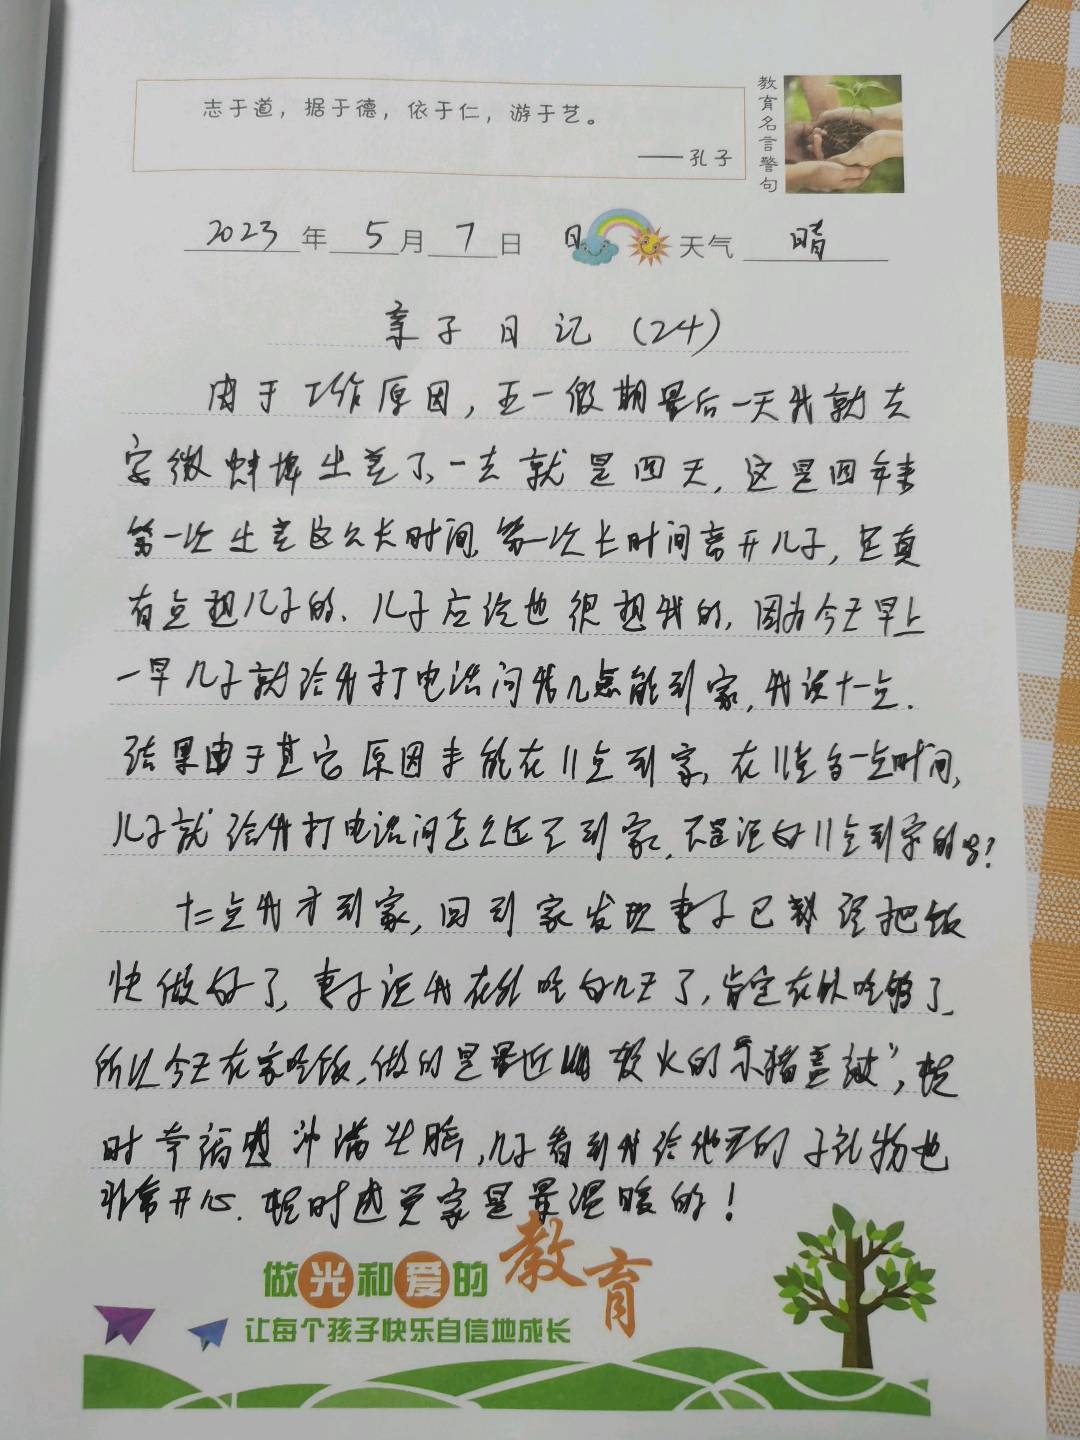 志于道，据于德，依于仁，游于艺。
——孔子
教育名言警句
2023年5月7日 日 天气 晴
亲子日记（24）
由于工作原因，五一假期最后一天我就去
安徽蚌埠出差了、一去就是四天，这是四年来
第一次出差这么长时间，第一次长时间离开儿子，还真
有点想儿子的、儿子应该也很想我的，因为今天早上
一早儿子就给我打电话问我几点能到家，我说十一点．
结果由于其它原因未能在11点到家，在11点多一点时间，
儿子就给我打电话问怎么还不到家，不是说好11点到家的吗？
十二点我才到家，回到家发现妻子已都经把饭
快做好了，妻子说我在外吃好几天了，肯定在外吃够了，
所以今天在家吃饭，做的是最近比较火的"小猪盖被"，顿
时幸福感冲满大脑，儿子看到我给他买的 子礼物也
非常开心．顿时感觉家是最温暖的！
做光和爱的教育
让每个孩子快乐自信地成长